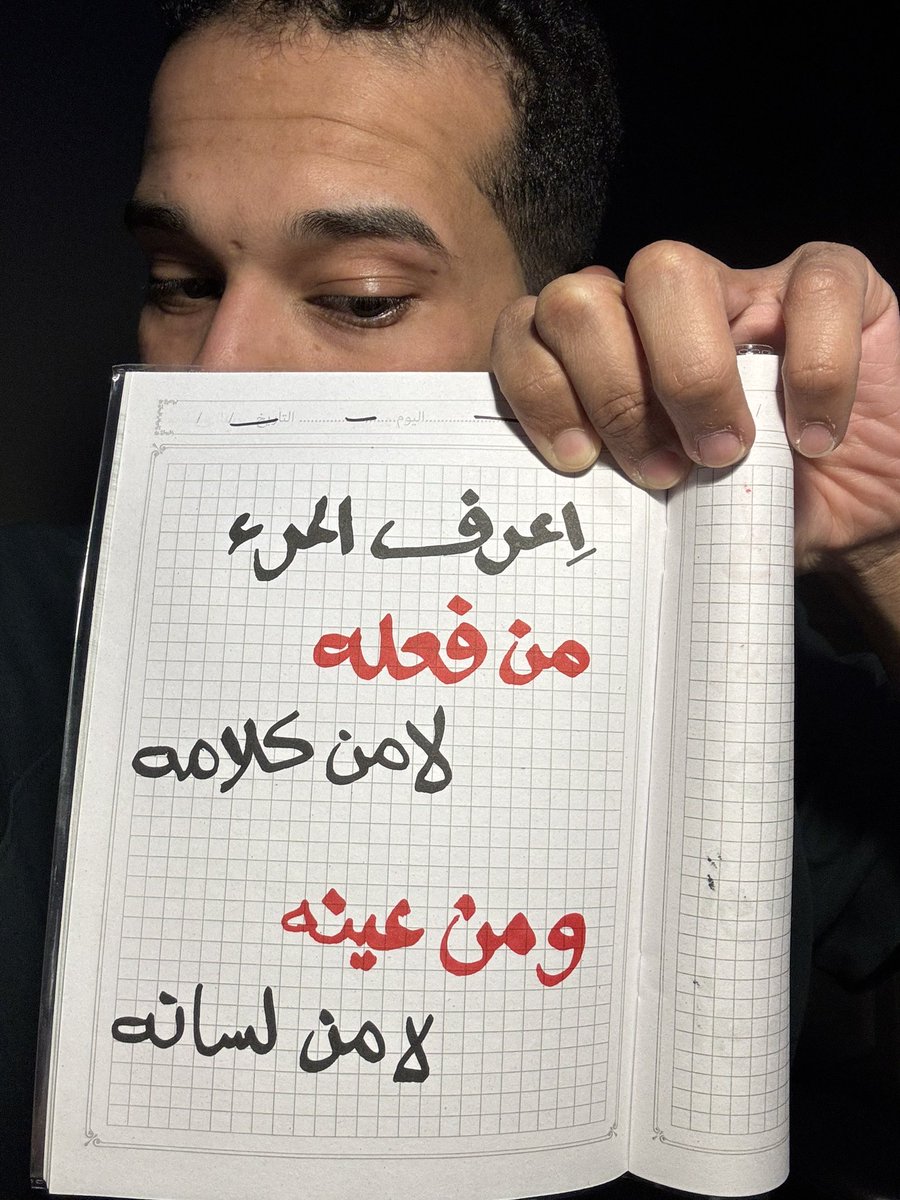 اليوم التاريخ / /
اِعرف المرء
من فعله
لا من كلامه
ومن عينه
لا من لسانه